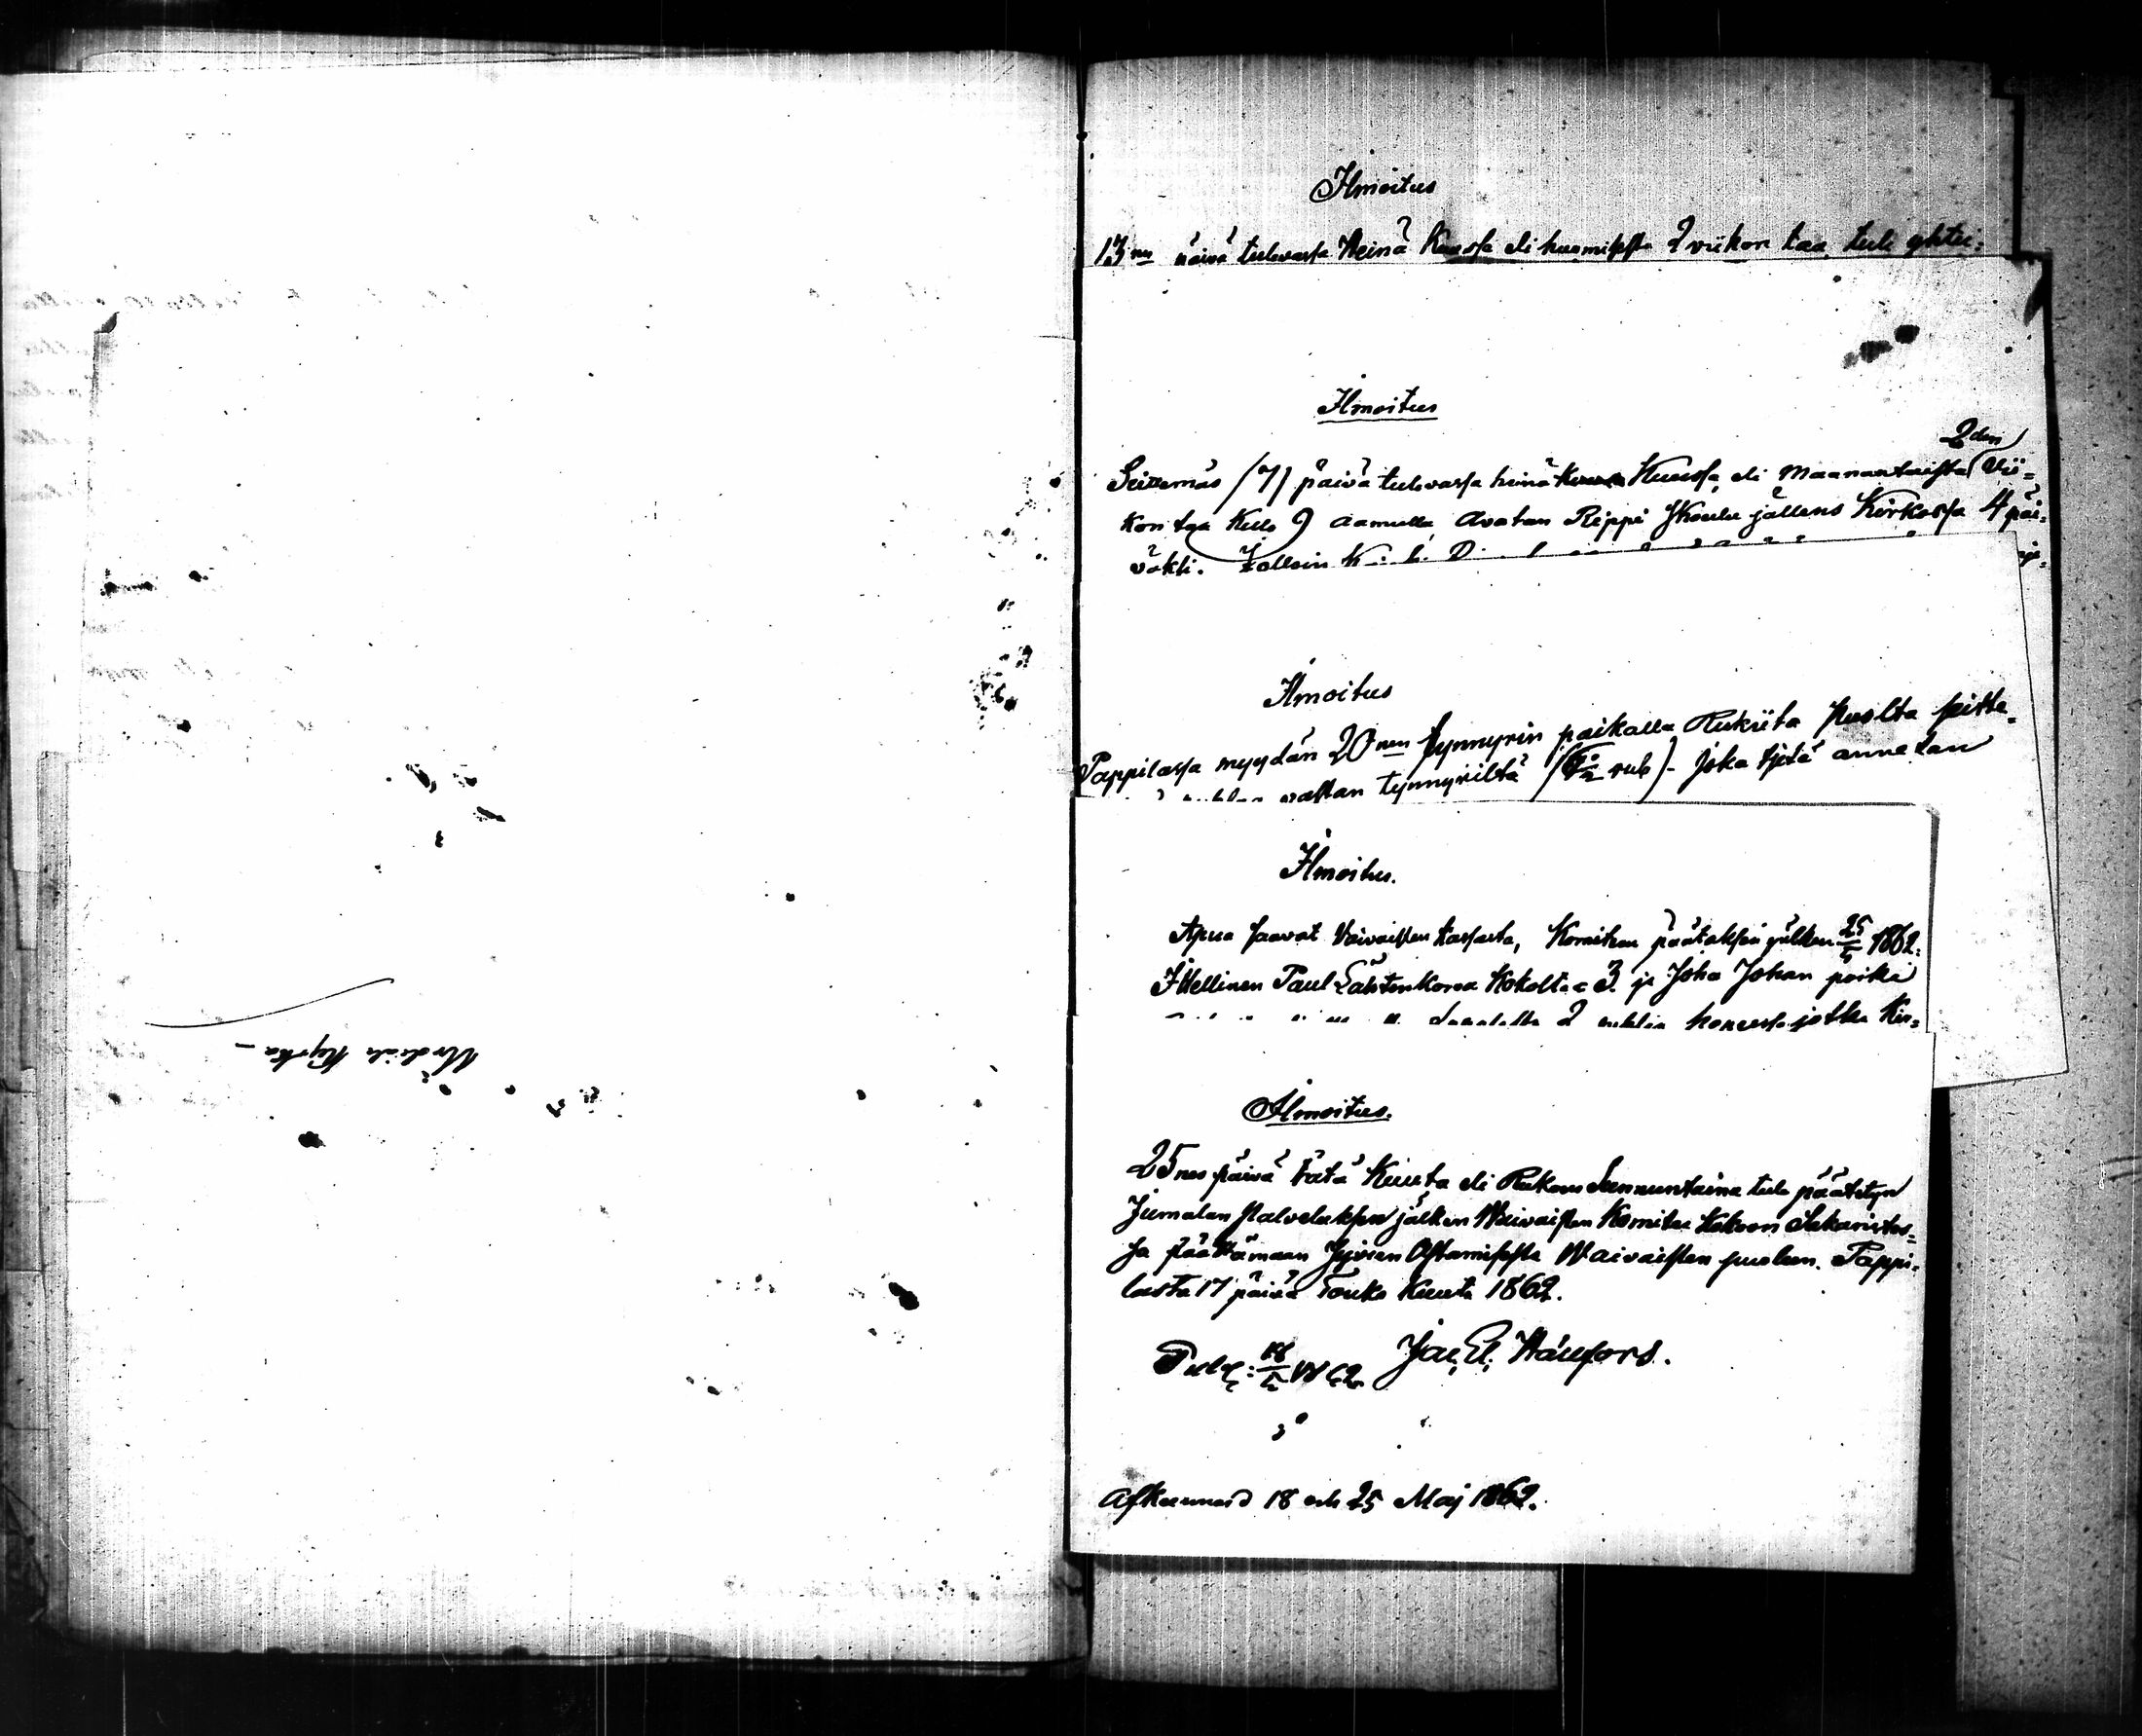 Urdiala Kyrka –
Ilmoitus
13nes päivä tulevassa Heinä Kuussa eli huomisesta 2 viikon taa, tule yhtei-
Ilmoitus
2den
Seittemäs (7) päivä tulevassa heinä Kuussa, eli Maanantaista Vii-
kon taa Kello 9 aamulla, Avatan Rippi Skoulu jällens Kirkossa 4 päi-
väksi.
Ilmoitus
Pappilassa myydän 20nen tynnyrin paikalla Rukiita puolta
vastan tynnyriltä – joka tästä annetan
Ilmoitus.
Apua saavat Vaivaisten kassasta, Komitean päätöksen jälken 25/5 1862:
Itellinen Paul Lähtenkorva Kokolta 3. ja Joha Johan poika
2 ruplaa jotka Kir-
Ilmoitus.
25nes päivä tätä Kuuta eli Rukous Sunnuntaina tule päätetyn
Jumalan palveluksen jälken Waivaisten Komitea Kokoon Sakaristos-
sa päättämään Jyväen Ostamisesta Waivaisten puoleen. Pappi-
lasta 17 päivä Touko Kuuta 1862.
Publ: 18/5 1862 Jac. Ed. Wänfors.
Afkunnad 18 och 25 Maj 1862.